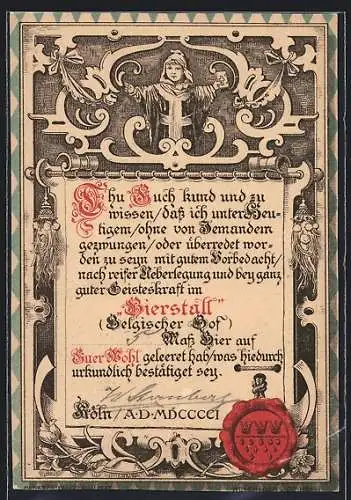 Thu Euch kund und zu
wissen/daß ich unter Heu-
tigem/ohne von Jemandem
gezwungen/oder überredet wor-
den zu seyn mit gutem Vorbedacht/
nach reifer Ueberlegung und bey ganz
guter Geisteskraft im
„Bierställ"
(Belgischer Hof)
Maß Bier auf
Euer Wohl geleeret hab/was hiedurch
urkundlich bestätiget sey.
Köln/A.D.MDCCCCI